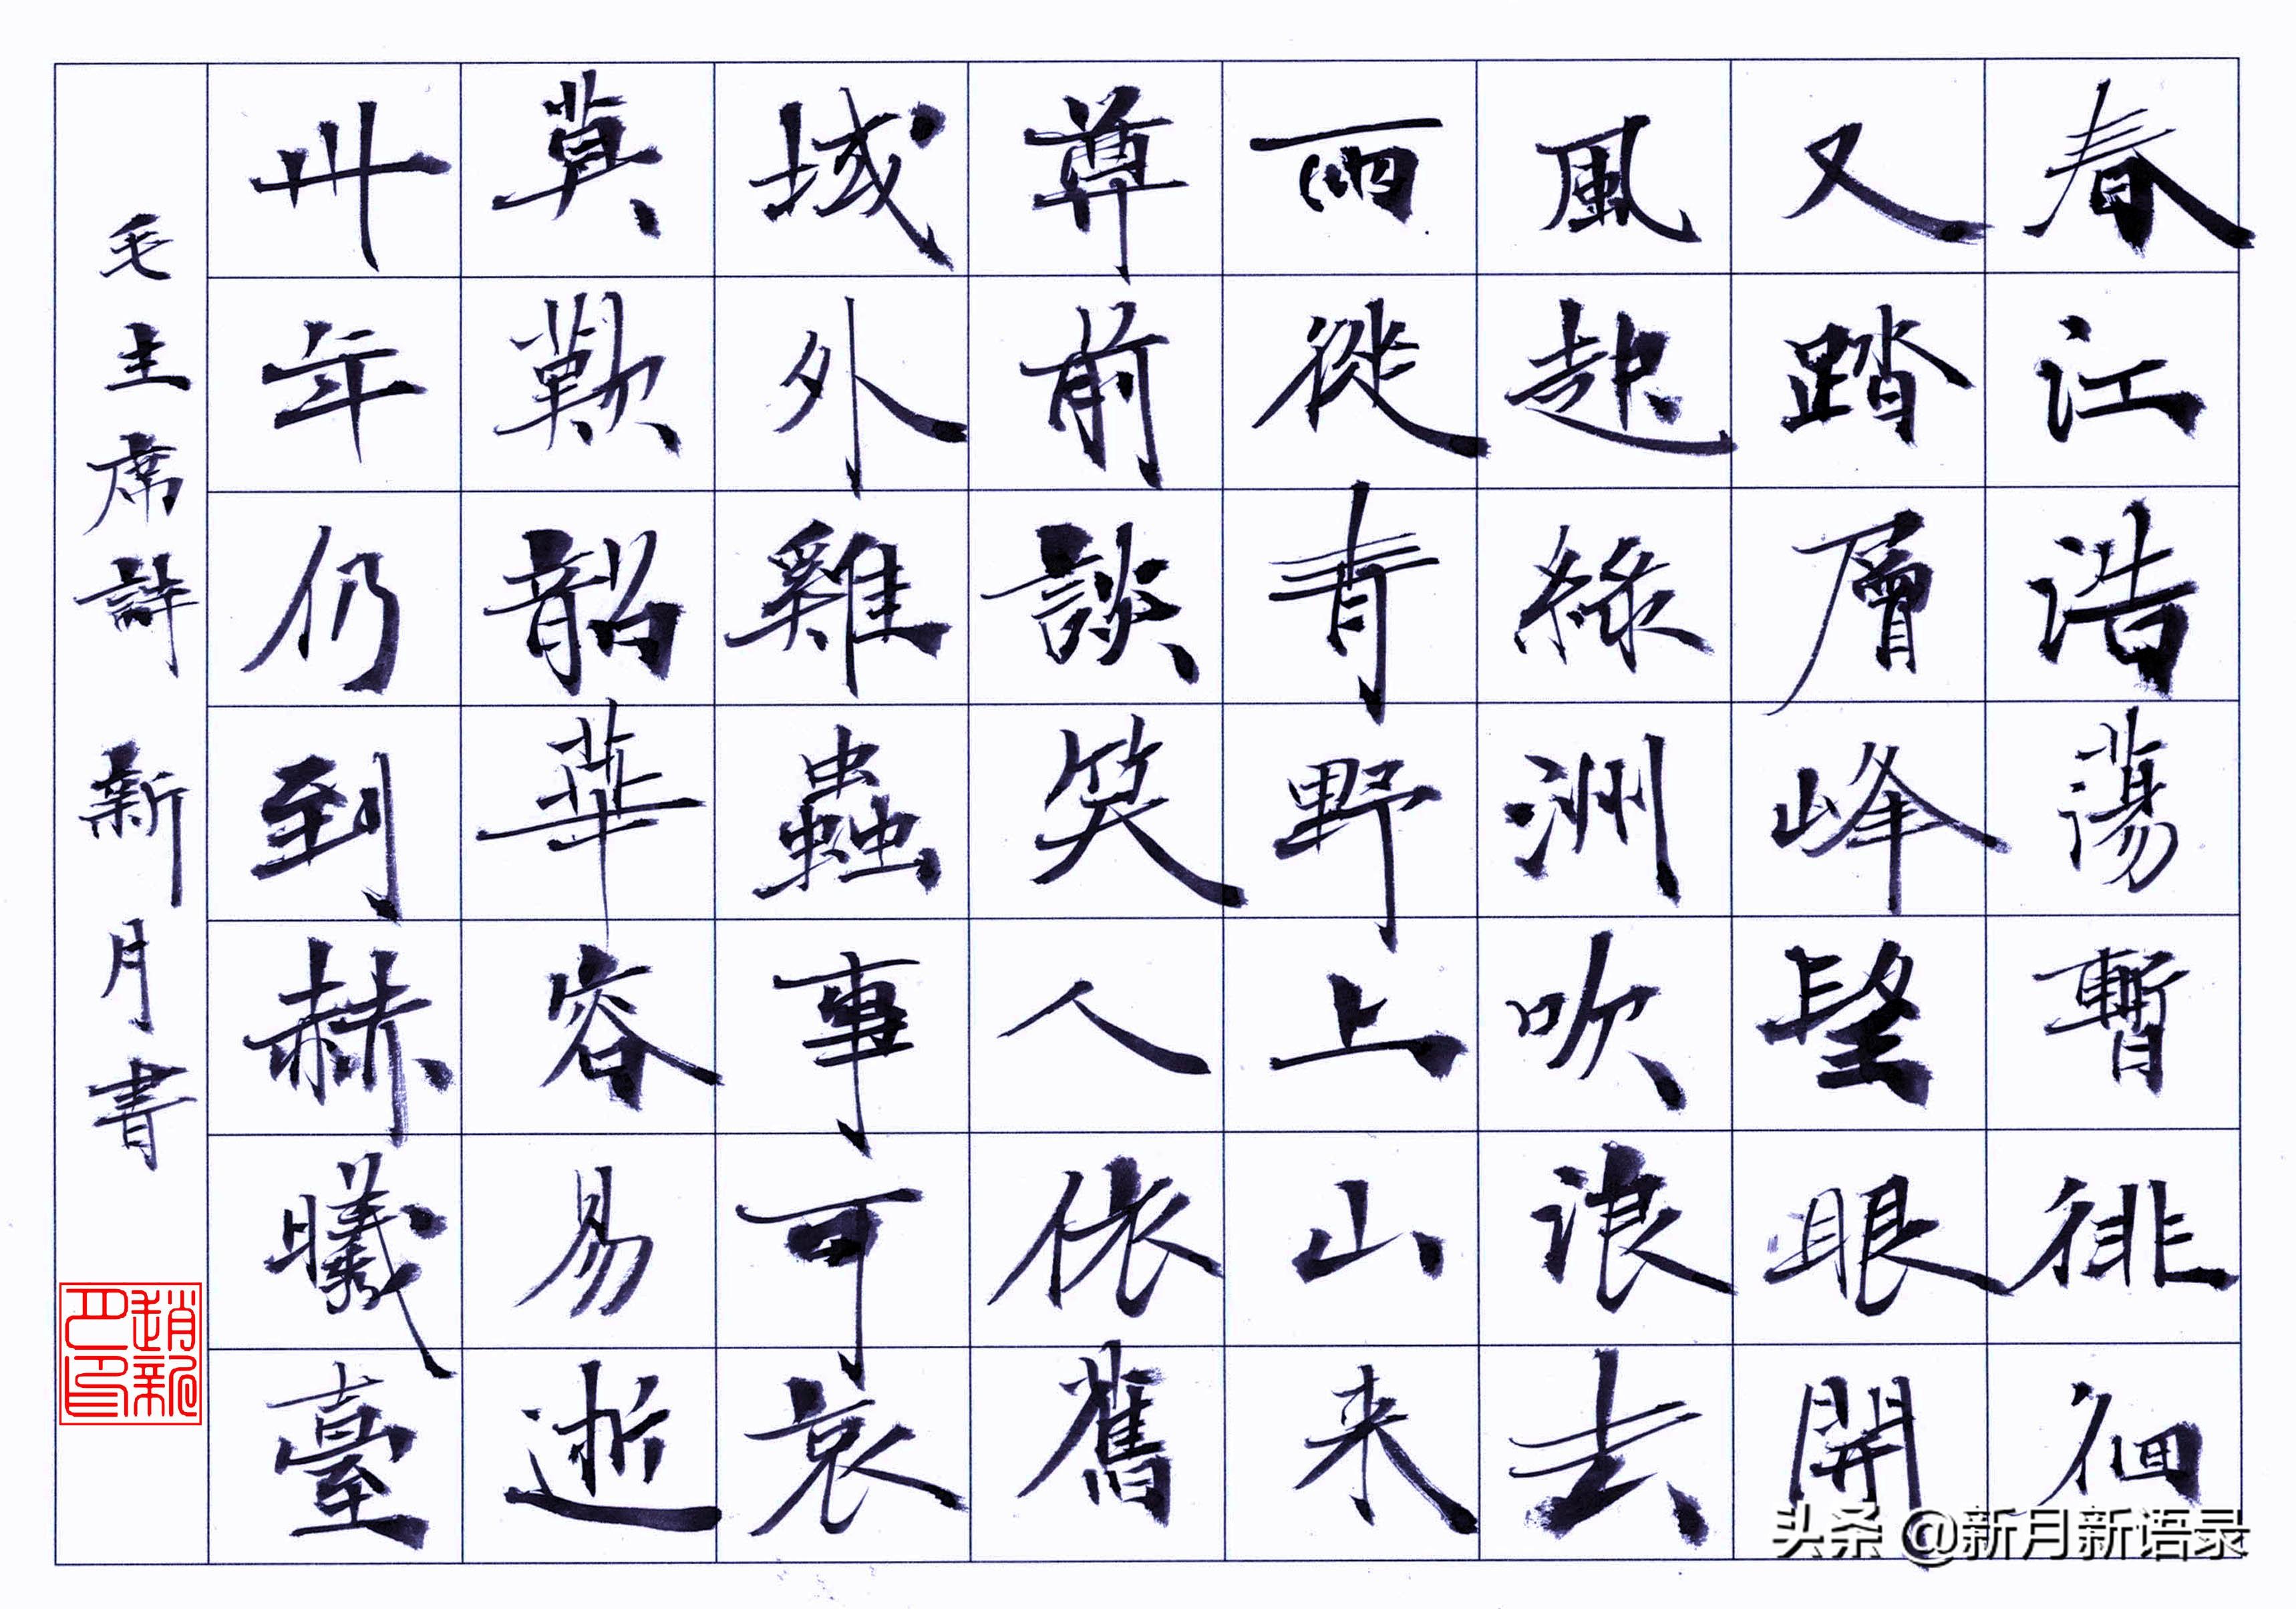 春江浩蕩暫徘徊
又踏層峰望眼開
風起綠洲吹浪去
雨從青野上山來
尊前談笑人依舊
域外雞蟲事可哀
莫歎韶華容易逝
卅年仍到赫曦臺
毛主席詩 新月書
趙新月印
头条 @新月新语录